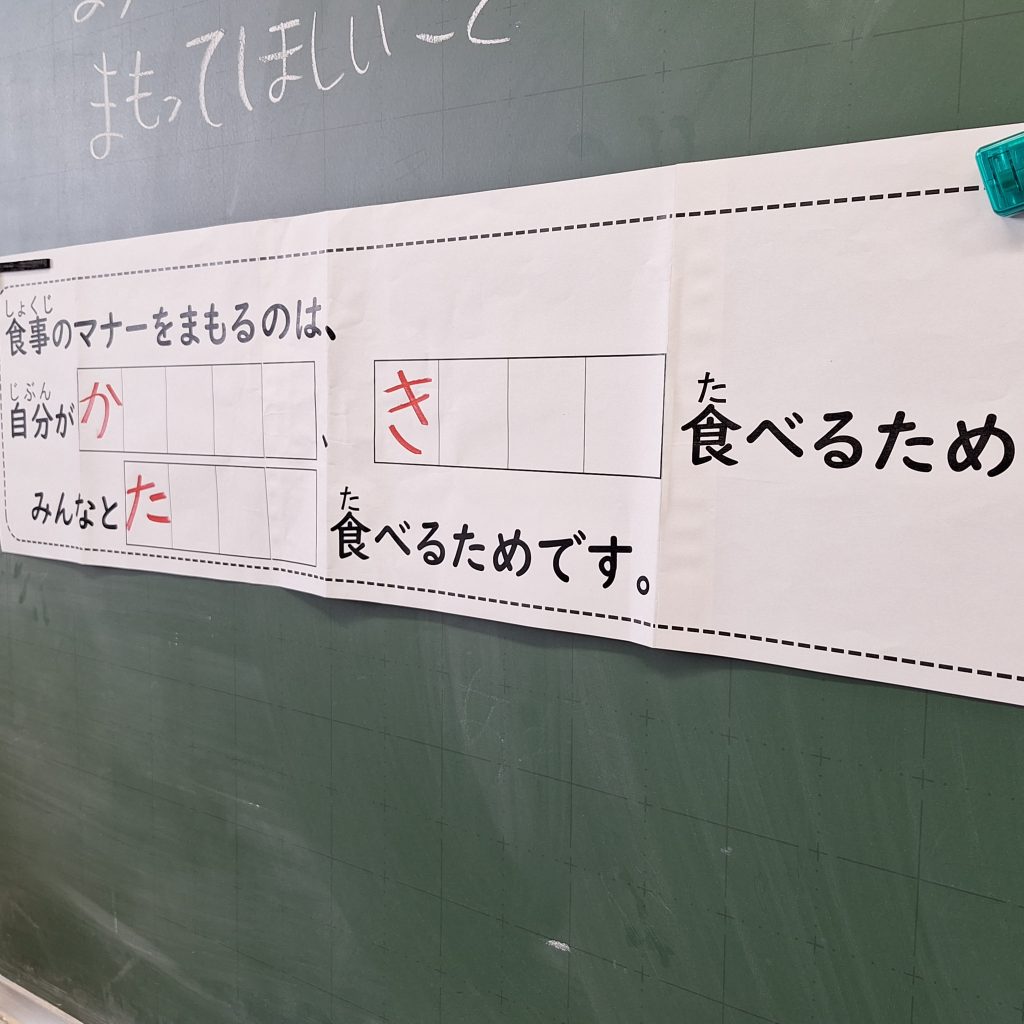 まもってほしいこと
しょくじ
食事のマナーをまもるのは、
じぶん た
自分がか、き 食べるため
た
みんなとた 食べるためです。